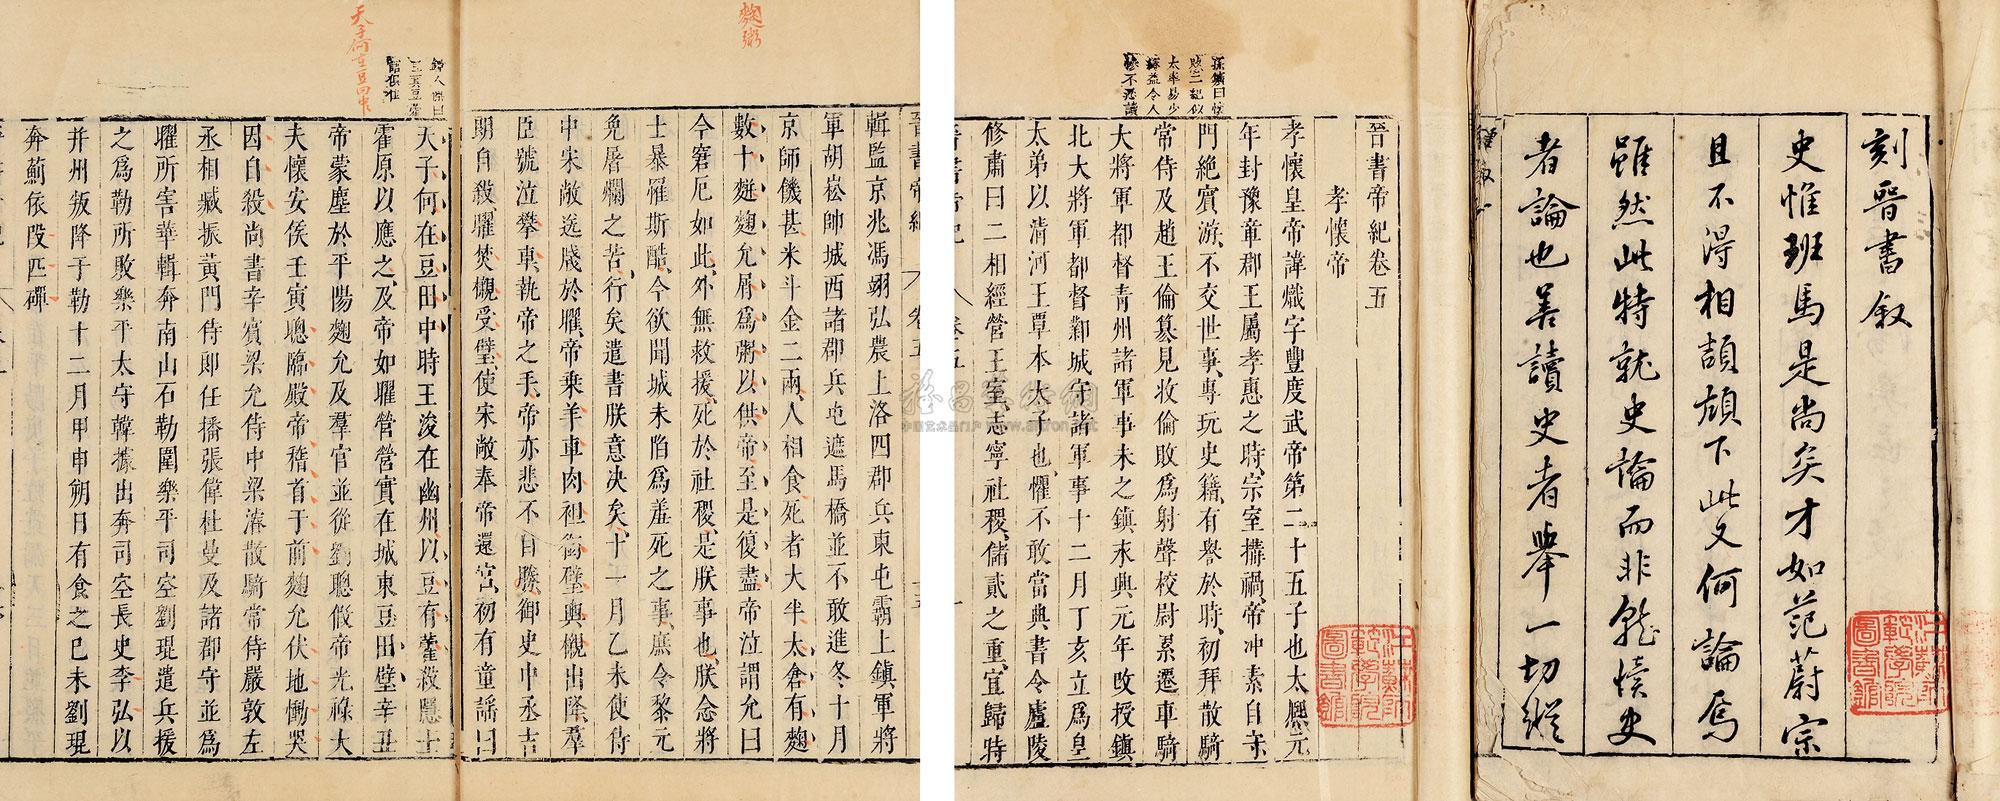 刻晉書叙
史惟班馬是尚矣才如范蔚宗
且不得相頡頏下此又何論焉
雖然此特就史論而非就讀史
者論也善讀史者舉一切縱
晉書帝紀卷五
孝懷帝
孝懷皇帝諱熾字豐度武帝第二十五子也太熈元
年封豫章郡王屬孝惠之時宗室搆禍帝冲素自守
門絶賓游不交世事專玩史籍有譽於時初拜散騎
常侍及趙王倫篡見收倫敗爲射聲校尉累遷車騎
大將軍都督青州諸軍事未之鎮永興元年改授鎮
北大將軍都督鄴城守諸軍事十二月丁亥立爲皇
太弟以清河王覃本太子也懼不敢當典書令廬陵
修肅曰二相經營王室志寧社稷儲貳之重宜歸時
孫鑛曰懷
愍二紀似
太率易少
麴粥
輯監京兆馮翊弘農上洛四郡兵東屯霸上鎮軍將
軍胡崧帥城西諸郡兵屯遮馬橋並不敢進冬十月
京師饑甚米斗金二兩人相食死者大半太倉有麴
數十䴵麴允屑爲粥以供帝至是復盡帝泣謂允曰
今窘厄如此外無救援死於社稷是朕事也朕念將
士暴離斯酷今欲聞城未陷爲羞死之事庶令黎元
免屠爛之苦行矣遣書朕意决矣十一月乙未使侍
中宋敞送牋於曜帝乘羊車肉袒銜璧輿櫬出降羣
臣號泣攀車執帝之手帝亦悲不自勝御史中丞吉
朗自殺曜焚櫬受璧使宋敞奉帝還宮初有童謡曰
天子何在豆田中
天子何在豆田中時王浚在幽州以豆有藿殺隱士
霍原以應之及帝如曜營營實在城東豆田壁辛丑
帝蒙塵於平陽麴允及羣官並從劉聰假帝光祿大
夫懷安侯壬寅聰臨殿帝稽首于前麴允伏地慟哭
因自殺尚書辛賓梁允侍中梁濬散騎常侍嚴敦左
丞相臧振黃門侍郎任播張偉杜曼及諸郡守並爲
曜所害華輯奔南山石勒圍樂平司空劉琨遣兵援
之爲勒所敗樂平太守韓據出奔司空長史李弘以
并州叛降于勒十二月甲申朔日有食之己未劉琨
奔薊依段匹磾